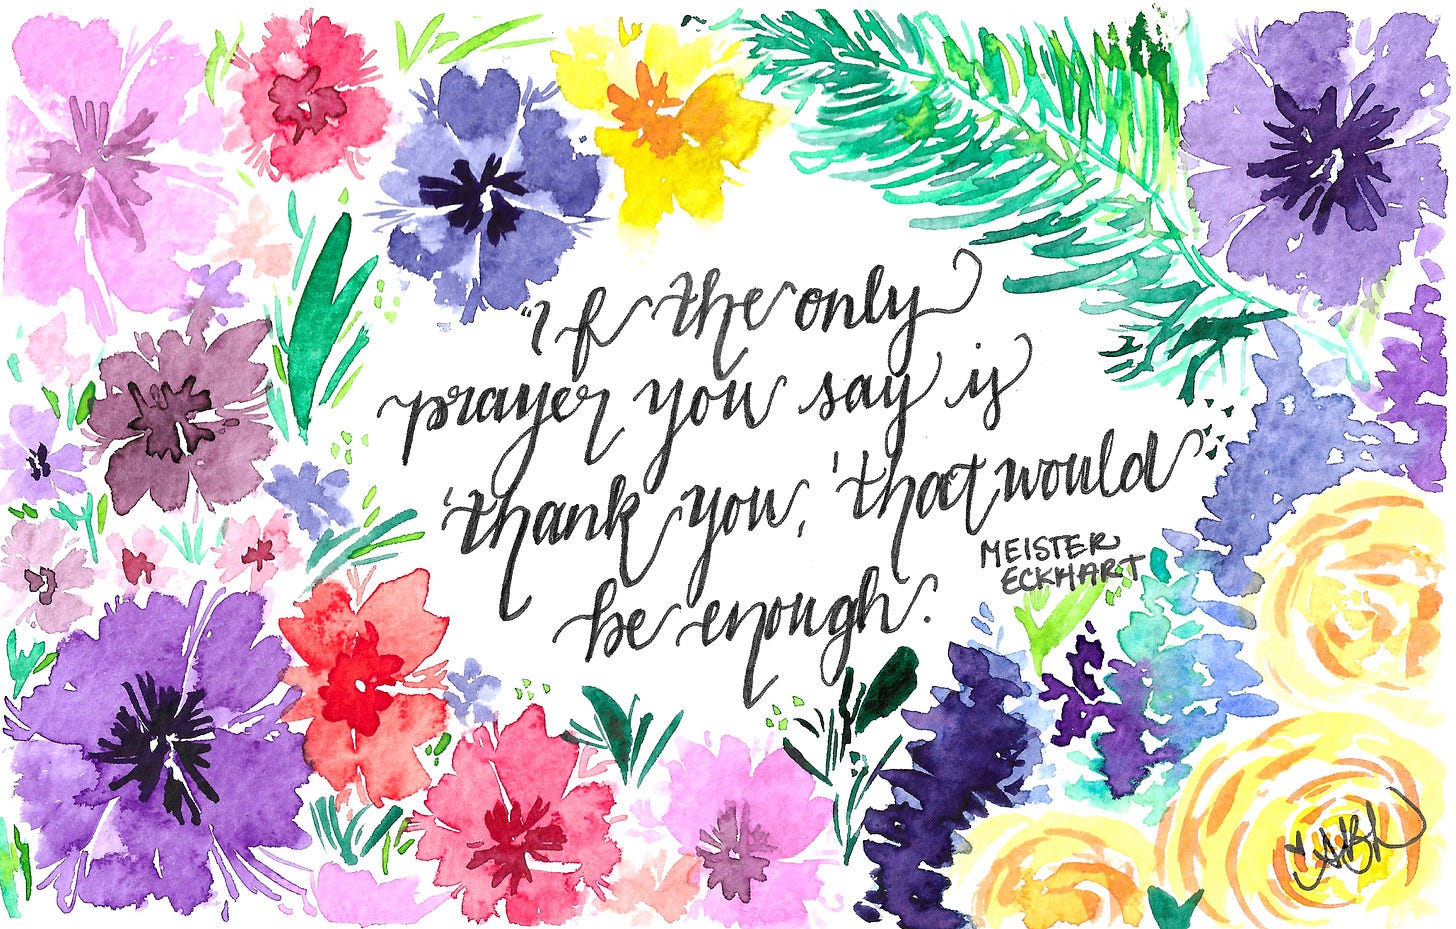 "If the only
prayer you say is
'thank you,' that would"
be enough.
MEISTER
ECKHART